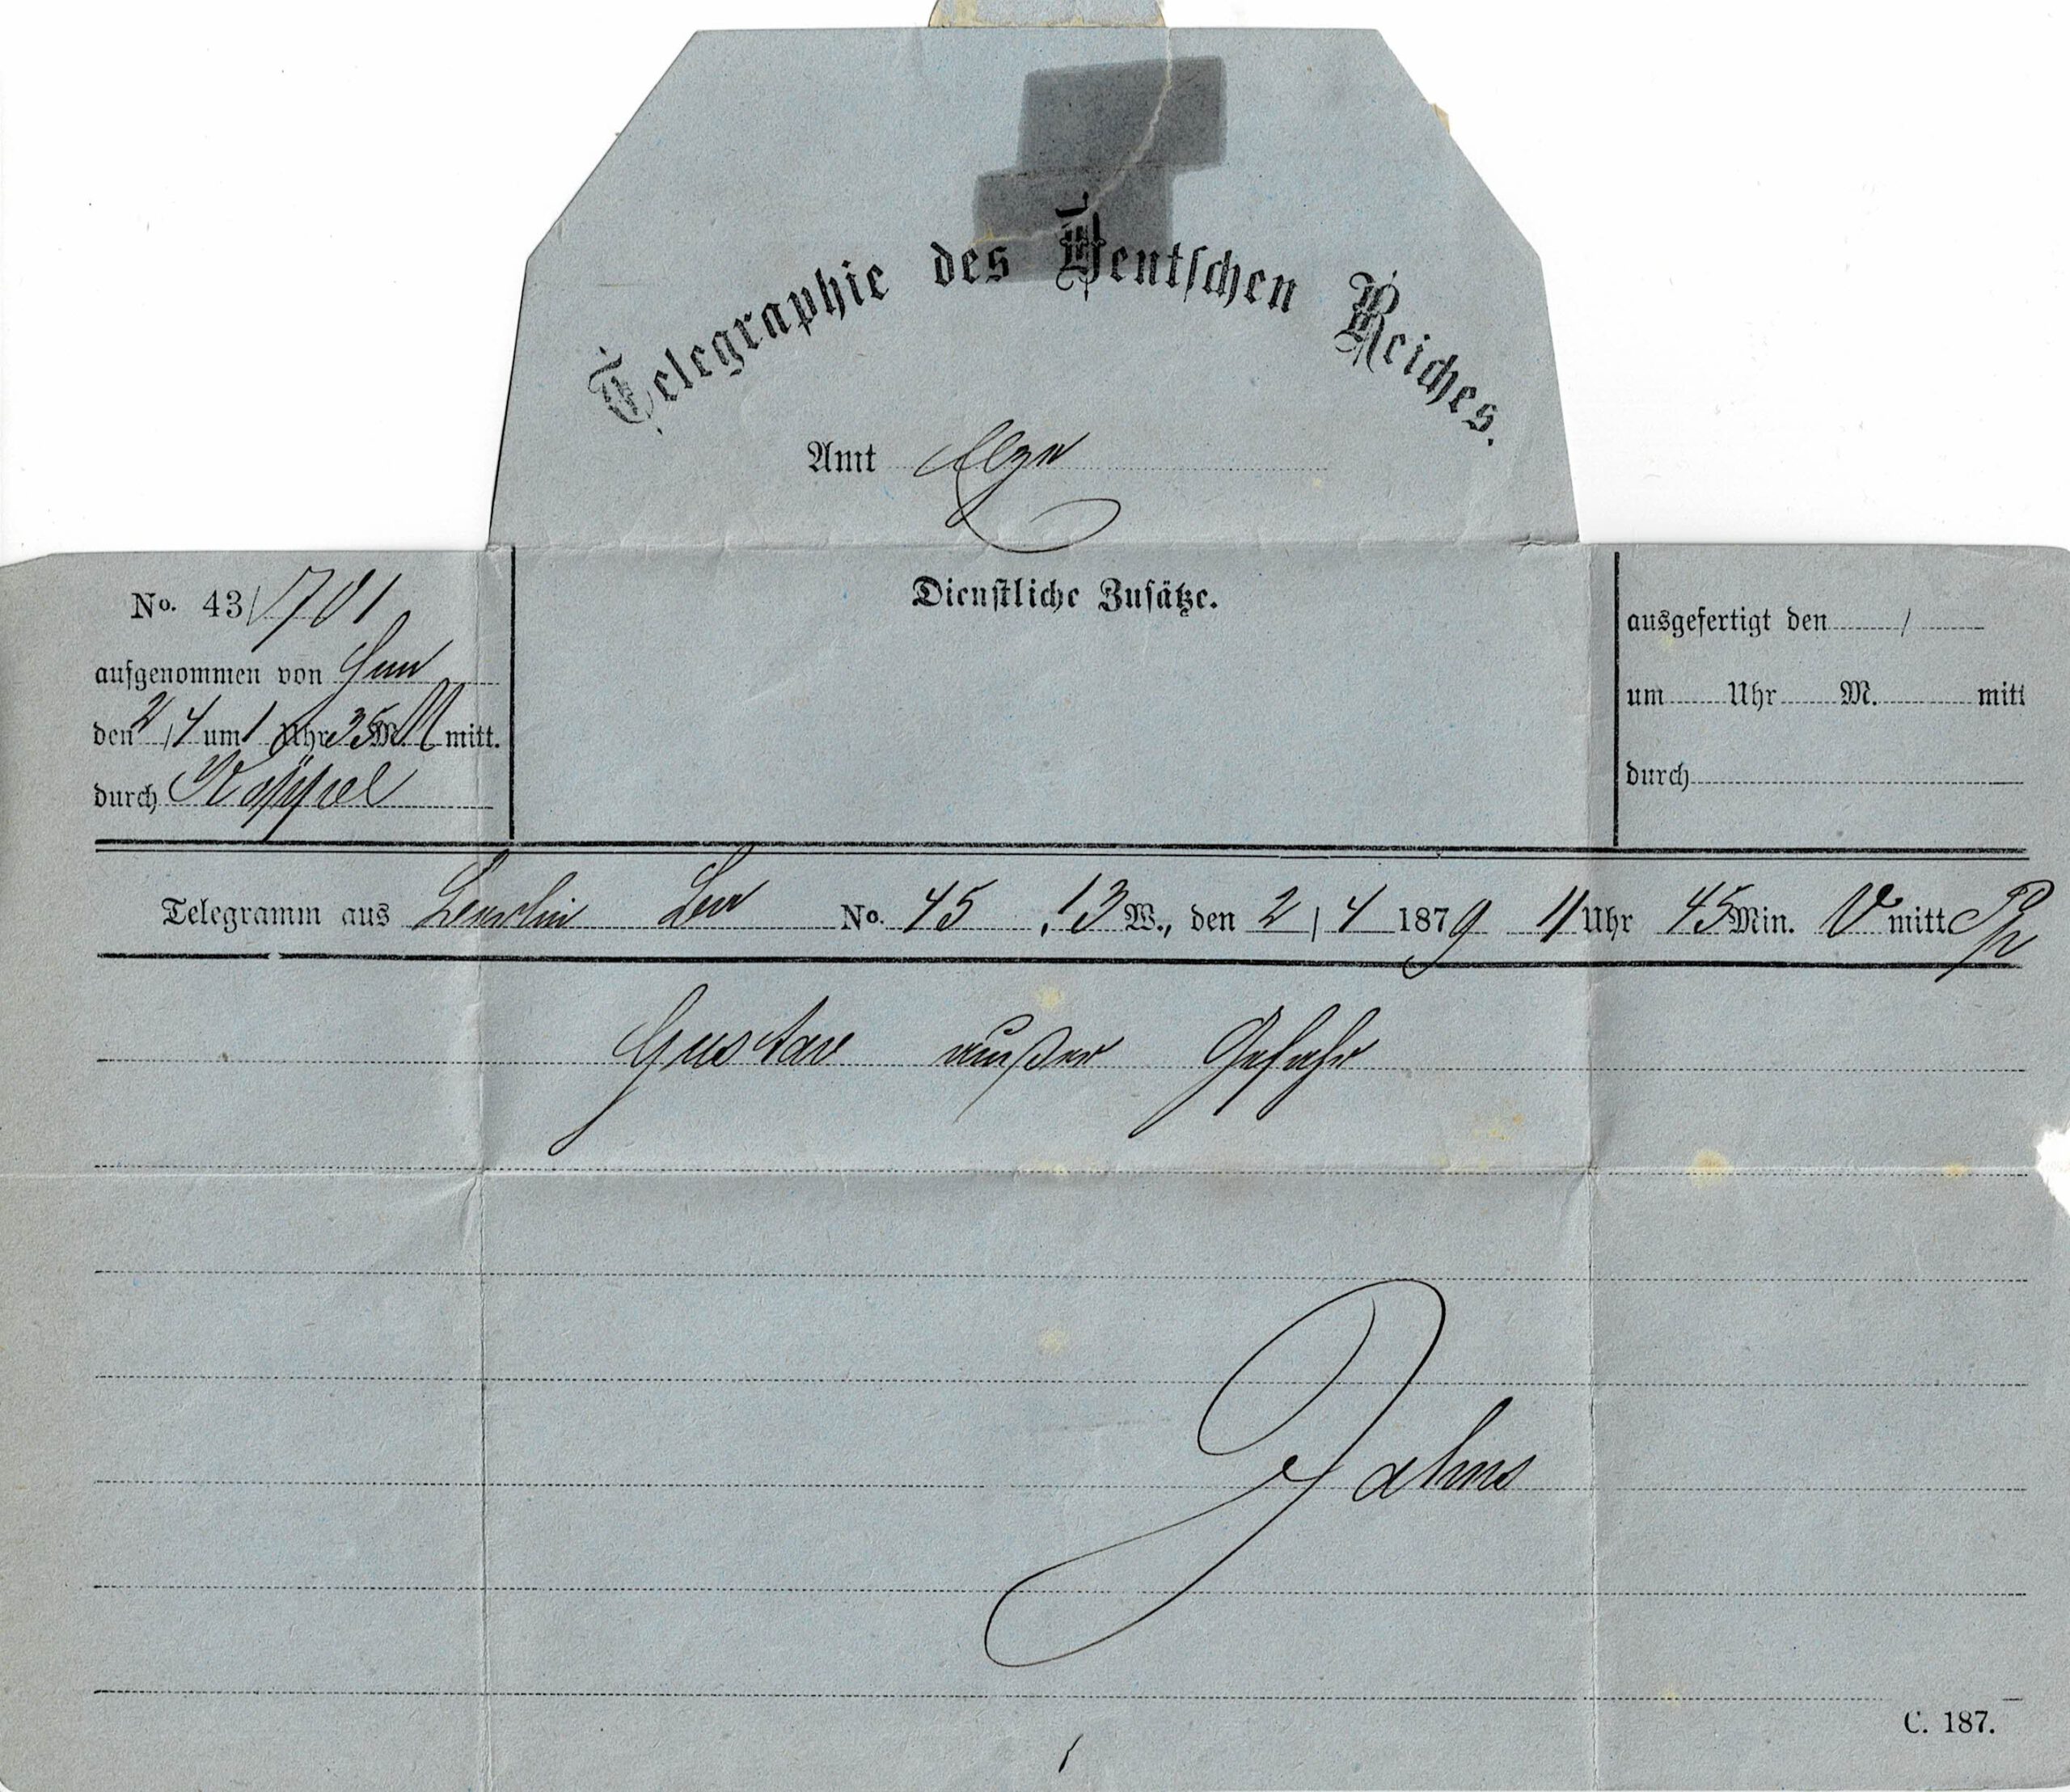 Telegraphie des Deutschen Reiches.
Amt
Dienstliche Zusätze.
No. 43/701
aufgenommen von
den 2/4 um 1 Uhr 35 M. N mitt.
durch Käppel
ausgefertigt den / 
um Uhr M. mitt
durch
Telegramm aus No. 45, 13 W., den 2/4 1879 11 Uhr 45 Min. V mitt
Gustav außer Gefahr
Jahns
C. 187.